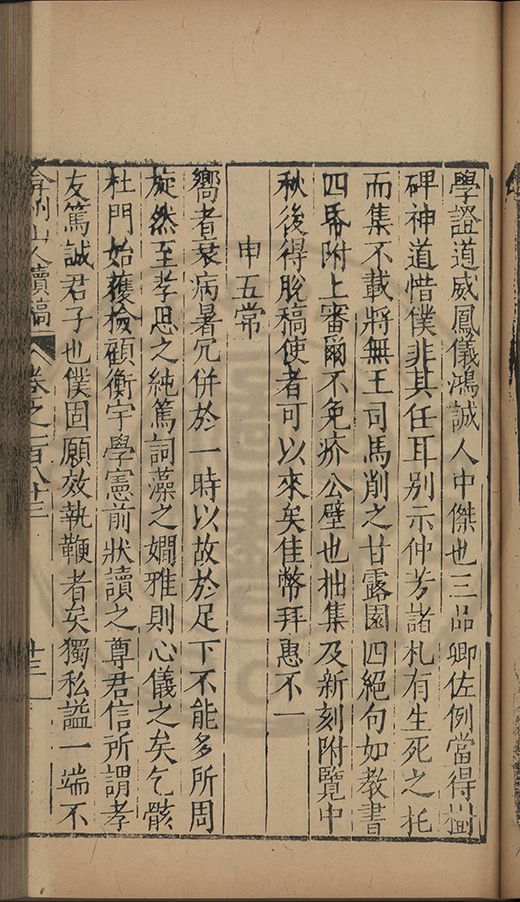 學證道威鳳儀鴻誠人中傑也三品卿佐例當得樹
碑神道惜僕非其任耳別示仲芳諸札有生死之托
而集不載將無王司馬削之甘露園四絕句如教書
四帋附上審爾不免疥公壁也拙集及新刻附覽中
秋後得脫稿使者可以來矣佳幣拜惠不一
申五常
嚮者衰病暑冗併於一時以故於足下不能多所周
旋然至孝思之純篤詞藻之嫺雅則心儀之矣乞骸
杜門始獲檢顧衡宇學憲前狀讀之尊君信所謂孝
友篤誠君子也僕固願效執鞭者矣獨私謚一端不
弇州山人續稿 卷之一百八十三 廿三